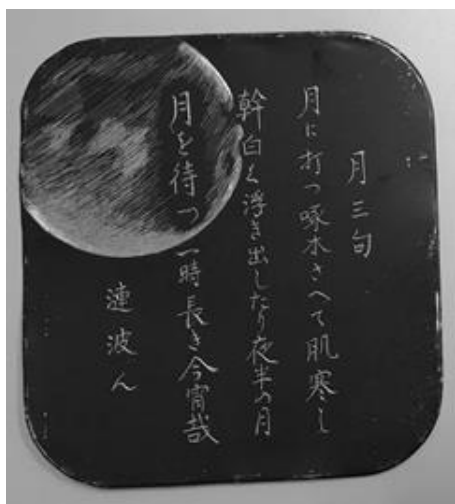 月三句
月に打つ啄木さへて肌寒し
幹白く浮き出したり夜半の月
月を待つ一時長き今宵哉
漣波ん